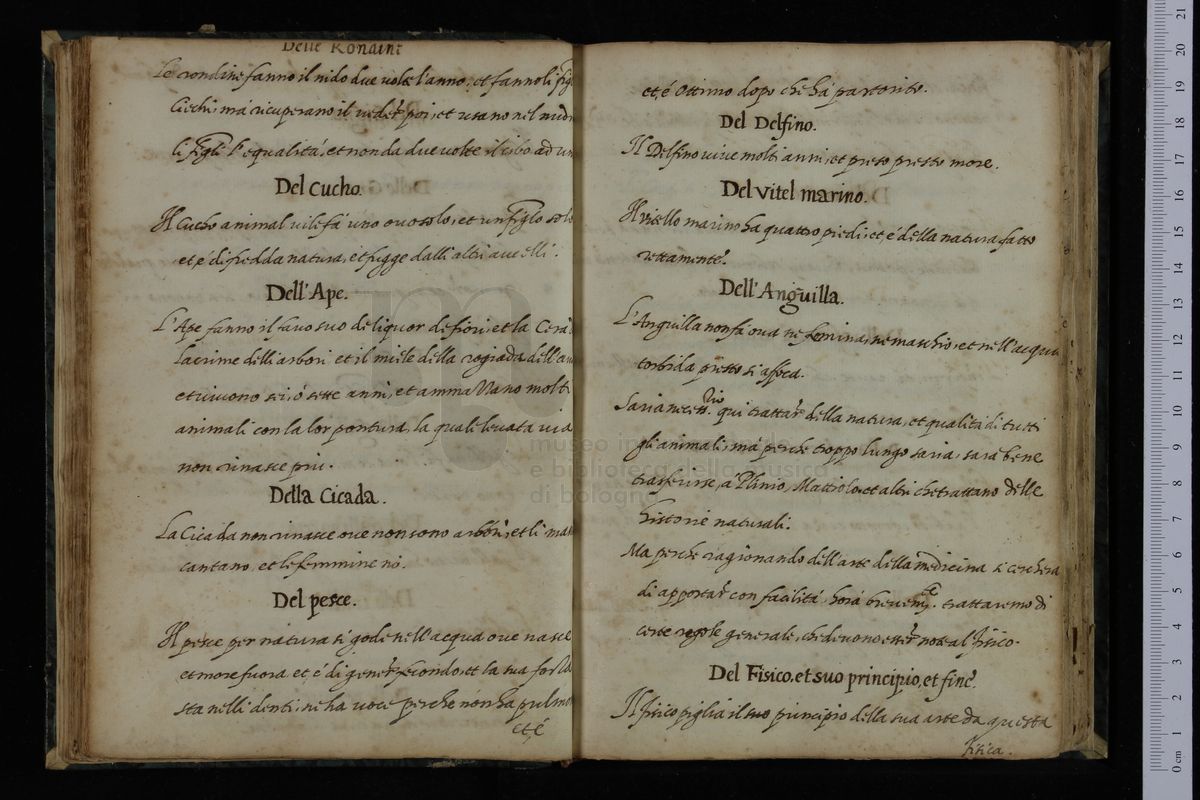 Delle Rondine
Le rondine fanno il nido due volte l'anno, et fanno li figl
Ciechi, mà ricuperano il veder poi, et usano nel nudr
li figli l'equalità, et non da due volte il cibo ad un
Del Cucho.
Il Cucho animal vile fà uno ovo solo, et un figlo solo
et, é di fredda natura, et fugge dalli altri aucelli.
Dell'Ape.
L'Ape fanno il favo suo de liquor de fiori, et la Cera
lacrime dell'arbori et il miele della rogiada dell'a
et vivono sei, ó sette anni, et ammazzano molti
animali con la lor pontura, la quale levata via
non rinasce più.
Della Cicada.
La Cicada non rinasce ove non sono arbori, et li mas
cantano, et le femmine nò.
Del pesce.
Il pesce per natura si gode nell'acqua ove nasce
et more fuora et, é di gener fecondo, et la sua forza
sta nelli denti, ne ha voce perche non ha pulmo
et, é
et, é ottimo dopo che hà partorito.
Del Delfino.
Il Delfino vive molti anni, et preso presto more.
Del Vitel marino.
Il vitello marino ha quattro piedi, et é della natura fatto
rettamente.
Dell'Anguilla.
L'Anguilla non fà ova ne femina, ne maschio, et nell'acqua
torbida presto si affoca.
Saria qui trattar della natura, et qualità di tutti
gli animali, mà perche troppo lungo saria, sarà bene
trasferirse, à Plinio, Mattiolo, et altri che trattano delle
historie naturali.
Ma perche ragionando dell'arte della medicina si cercherà
di apportar con facilità, horà brevem.te trattaremo di
certe regole generale, che devono esser note al fisico.
Del Fisico, et suo principio, et fine.
Il fisico piglia il suo principio della sua arte da questa
fisica.
museo in
e biblioteca della musica
di bologna
0 cm 1 2 3 4 5 6 7 8 9 10 11 12 13 14 15 16 17 18 19 20 21